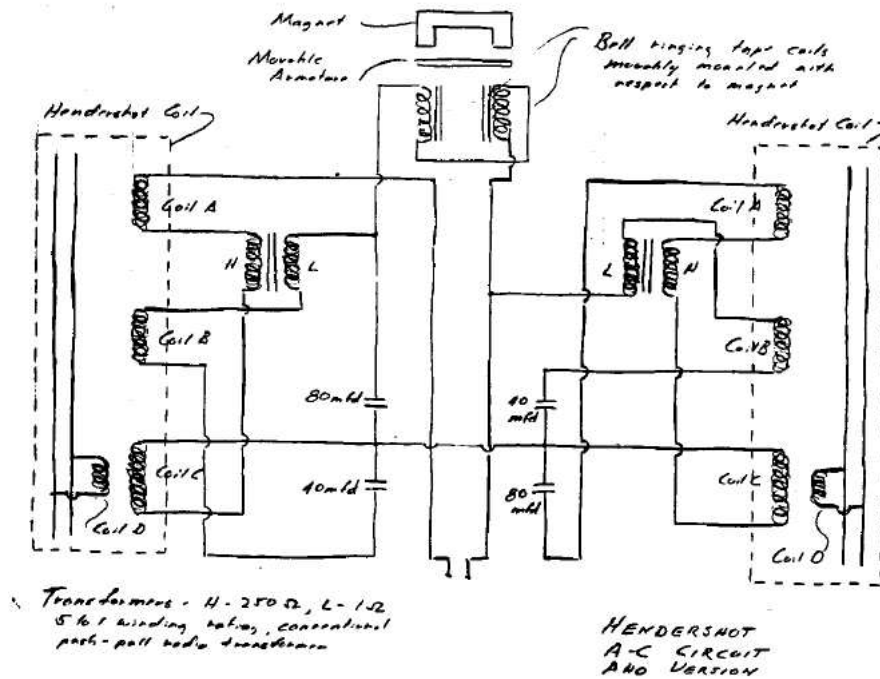 Magnet
Movable
Armature
Bell ringing type coils
movably mounted with
respect to magnet
Hendershot Coil
Hendershot Coil
Coil A
Coil A
H
L
L
H
Coil B
Coil B
80 mfd
40
mfd
Coil C
40 mfd
80
mfd
Coil C
Coil D
Coil D
Transformers - H-250 Ω, L-1Ω
5 to 1 winding ratio, conventional
push-pull radio transformer
HENDERSHOT
A-C CIRCUIT
AND VERSION